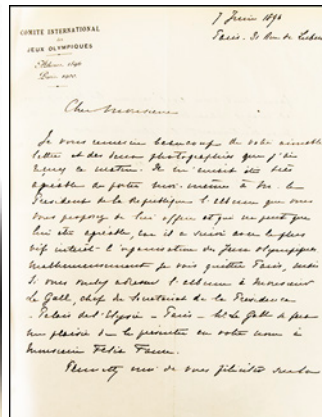 7 Juin 1896
Paris. 20 Rue de
COMITÉ INTERNATIONAL
des
JEUX OLYMPIQUES
Athènes 1896
Paris 1900
Cher Monsieur
Je vous remercie beaucoup de votre aimable
lettre et des deux photographies que j'ai
reçues ce matin. Il m'aurait été très
agréable de porter moi-même à M. le
Président de la République l'album que vous
vous proposez de lui offrir et qui ne peut que
lui être agréable, car il a suivi avec le plus
vif intérêt l'organisation des Jeux Olympiques
Malheureusement je vais quitter Paris, mais
si vous voulez adresser l'album à Monsieur
Le Gall, chef du Secrétariat de la Présidence
- Palais de l'Elysée - Paris - M. Le Gall se fera
un plaisir de le présenter en votre nom à
Monsieur Félix Faure.
Permettez moi de vous féliciter